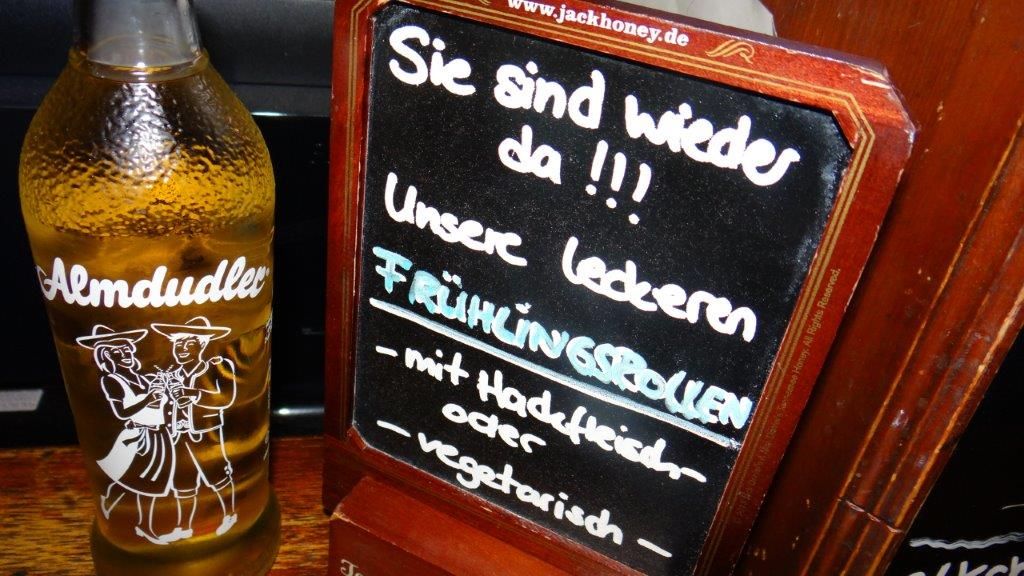 www.jackhoney.de
Sie sind wieder
da !!!
Unsere leckeren
FRÜHLINGSROLLEN
- mit Hackfleisch -
oder
- vegetarisch -
Almdudler